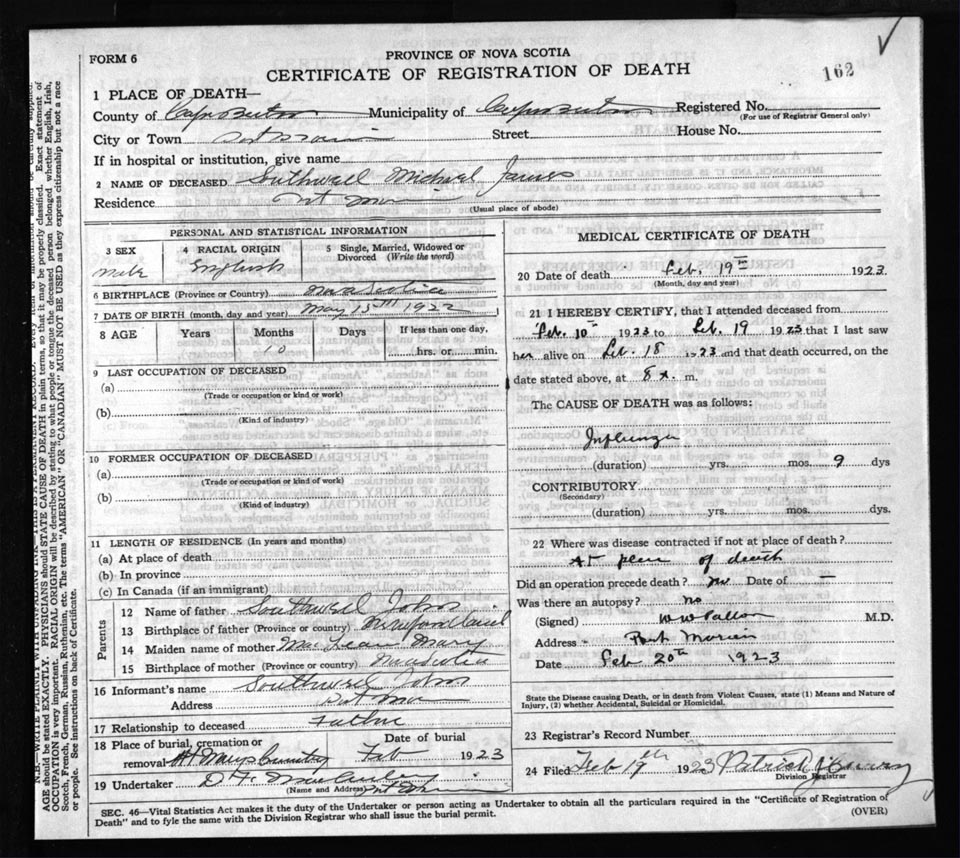 FORM 6
PROVINCE OF NOVA SCOTIA
CERTIFICATE OF REGISTRATION OF DEATH
162
1 PLACE OF DEATH—
County of Municipality of Registered No.
(For use of Registrar General only)
City or Town Street House No.
If in hospital or institution, give name
2 NAME OF DECEASED Southwell Michael James
Residence
(Usual place of abode)
PERSONAL AND STATISTICAL INFORMATION
3 SEX 4 RACIAL ORIGIN 5 Single, Married, Widowed or Divorced (Write the word)
Male English
6 BIRTHPLACE (Province or Country)
7 DATE OF BIRTH (month, day and year) May 15th 1922
8 AGE Years Months Days If less than one day,
10 hrs. or min.
9 LAST OCCUPATION OF DECEASED
(a)
(Trade or occupation or kind or work)
(b)
(Kind of industry)
10 FORMER OCCUPATION OF DECEASED
(a)
(Trade or occupation or kind or work)
(b)
(Kind of industry)
11 LENGTH OF RESIDENCE (In years and months)
(a) At place of death
(b) In province
(c) In Canada (if an immigrant)
Parents
12 Name of father Southwel John
13 Birthplace of father (Province or country) Newfoundland
14 Maiden name of mother McLean Mary
15 Birthplace of mother (Province or country)
16 Informant's name Southwel John
Address
17 Relationship to deceased Father
18 Place of burial, cremation or removal Date of burial
Feb 1923
19 Undertaker
(Name and Address)
MEDICAL CERTIFICATE OF DEATH
20 Date of death Feb. 19th 1923.
(Month, day and year)
21 I HEREBY CERTIFY, that I attended deceased from
Feb. 10th 1923 to Feb. 19 1923 that I last saw
alive on Feb. 18 1923 and that death occurred, on the
date stated above, at 8 m.
The CAUSE OF DEATH was as follows:
Influenza
(duration) yrs. mos. 9 dys
CONTRIBUTORY
(Secondary)
(duration) yrs. mos. dys.
22 Where was disease contracted if not at place of death?
At place of death
Did an operation precede death? no Date of —
Was there an autopsy? no
(Signed) M.D.
Address Port Morien
Date Feb 20th 1923
State the Disease causing Death, or in death from Violent Causes, state (1) Means and Nature of
Injury, (2) whether Accidental, Suicidal or Homicidal.
23 Registrar's Record Number
24 Filed Feb 19th 1923 Patrick
Division Registrar
SEC. 46—Vital Statistics Act makes it the duty of the Undertaker or person acting as Undertaker to obtain all the particulars required in the "Certificate of Registration of
Death" and to fyle the same with the Division Registrar who shall issue the burial permit.
(OVER)
AGE should be stated EXACTLY. PHYSICIANS should STATE CAUSE OF DEATH in plain terms, so that it may be properly classified. Exact statement of
OCCUPATION is very important. RACIAL ORIGIN will be described by stating to what people or tongue the deceased person belonged whether English, Irish,
Scotch, French, German, Russian, Ruthenian, etc. The terms "AMERICAN" OR "CANADIAN" MUST NOT BE USED as they express citizenship but not a race
or people. See instructions on back of Certificate.